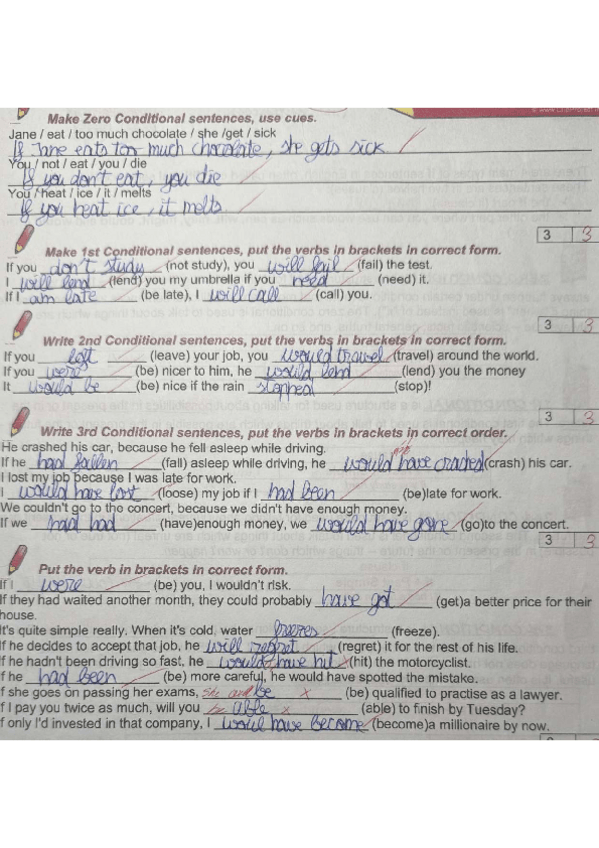 Make Zero Conditional sentences, use cues.
Jane / eat / too much chocolate / she /get / sick
If Jane eats too much chocolate, she gets sick.
You / not / eat / you / die
If you don't eat, you die
You / heat / ice / it / melts
If you heat ice, it melts
3 3
Make 1st Conditional sentences, put the verbs in brackets in correct form.
If you don't study (not study), you will fail (fail) the test.
I will lend (lend) you my umbrella if you need (need) it.
If I am late (be late), I will call (call) you.
3 3
Write 2nd Conditional sentences, put the verbs in brackets in correct form.
If you left (leave) your job, you would travel (travel) around the world.
If you were (be) nicer to him, he would lend (lend) you the money
It would be (be) nice if the rain stopped (stop)!
3 3
Write 3rd Conditional sentences, put the verbs in brackets in correct order.
He crashed his car, because he fell asleep while driving.
If he had fallen (fall) asleep while driving, he would have crached (crash) his car.
I lost my job because I was late for work.
I would have lost (loose) my job if I had been (be)late for work.
We couldn't go to the concert, because we didn't have enough money.
If we had had (have)enough money, we would have gone (go)to the concert.
3 3
Put the verb in brackets in correct form.
If I were (be) you, I wouldn't risk.
If they had waited another month, they could probably have got (get)a better price for their
house.
It's quite simple really. When it's cold, water freezes (freeze).
If he decides to accept that job, he will regret (regret) it for the rest of his life.
If he hadn't been driving so fast, he would have hit (hit) the motorcyclist.
f he had been (be) more careful, he would have spotted the mistake.
f she goes on passing her exams, be (be) qualified to practise as a lawyer.
f I pay you twice as much, will you be able (able) to finish by Tuesday?
f only I'd invested in that company, I would have become (become)a millionaire by now.